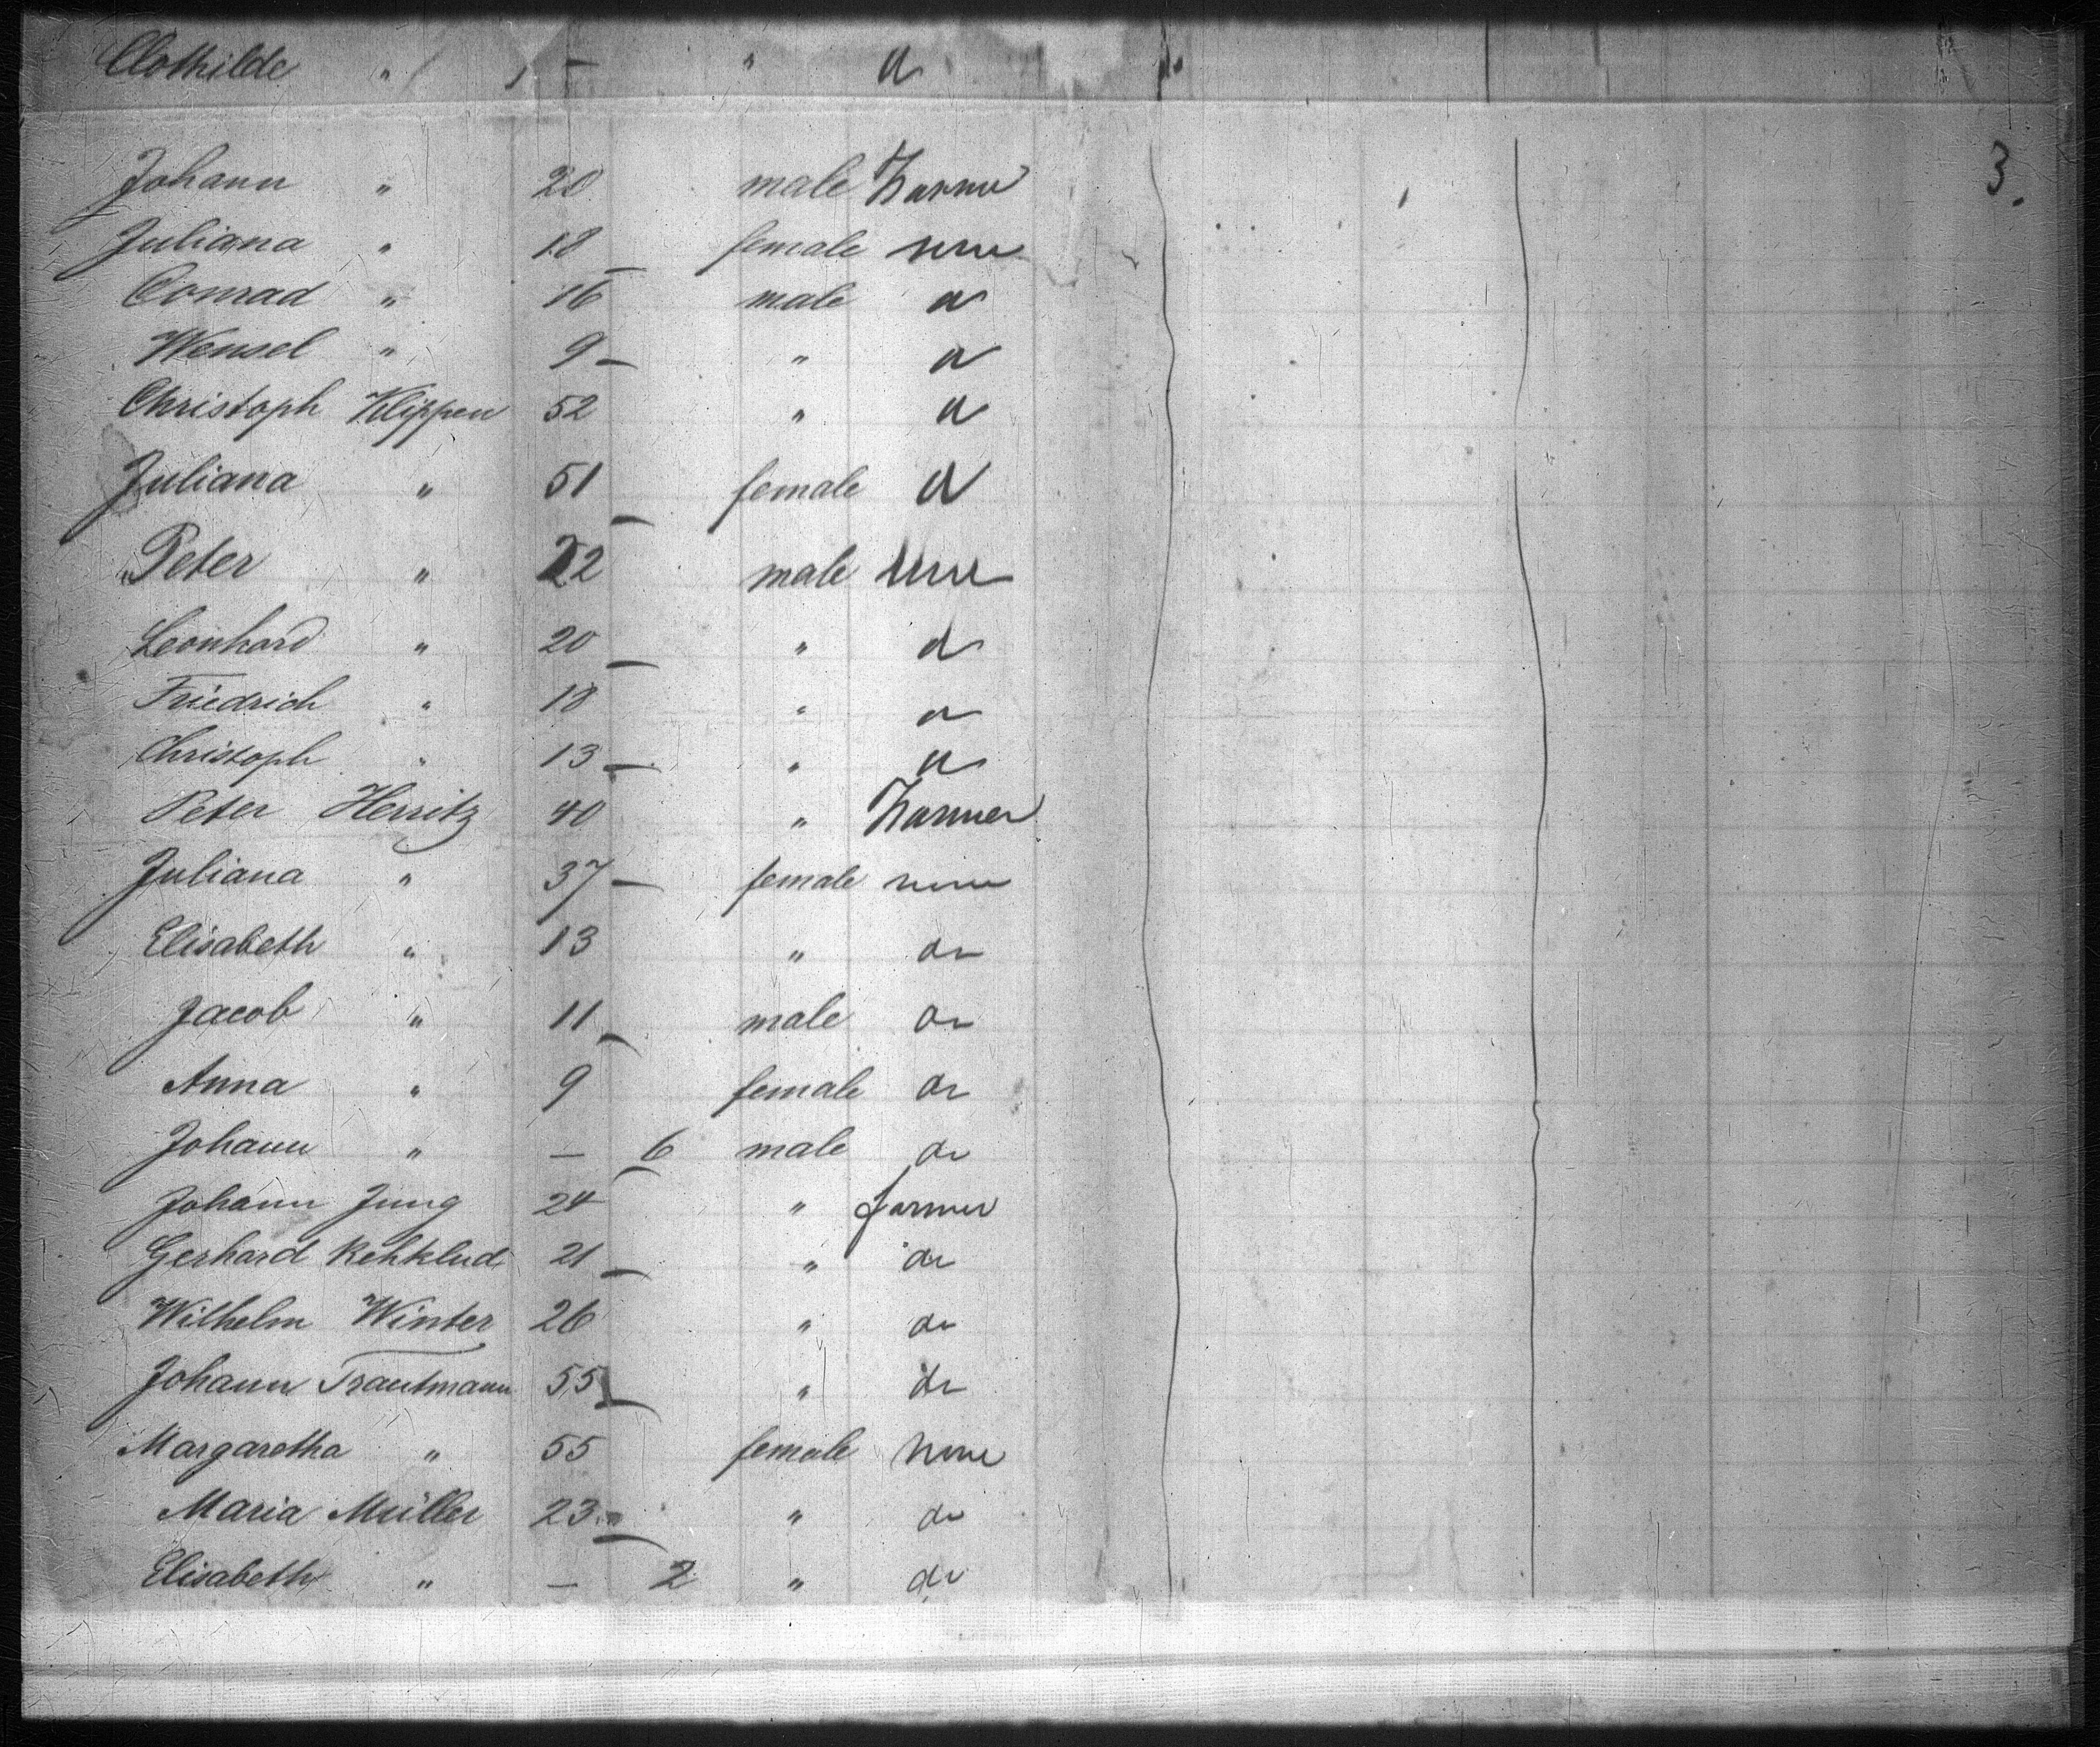 Clothilde " — " do
3.
Johann " 20 male Farmer
Juliana " 18 — female none
Conrad " 16 male do
Wensel " 9 — " do
Christoph Klippen 52 " do
Juliana " 51 — female do
Peter " 22 male none
Leonhard " 20 — " do
Friedrich " 18 " do
Christoph " 13 — " do
Peter Herritz 40 " Farmer
Juliana " 37 — female none
Elisabeth " 13 " do
Jacob " 11 — male do
Anna " 9 female do
Johann " — 6 male do
Johann Jung 24 " farmer
Gerhard Rehklud 21 — " do
Wilhelm Winter 26 " do
Johann Trautmann 55 — " do
Margaretha " 55 female none
Maria Müller 23 — " do
Elisabeth " — 2 " do